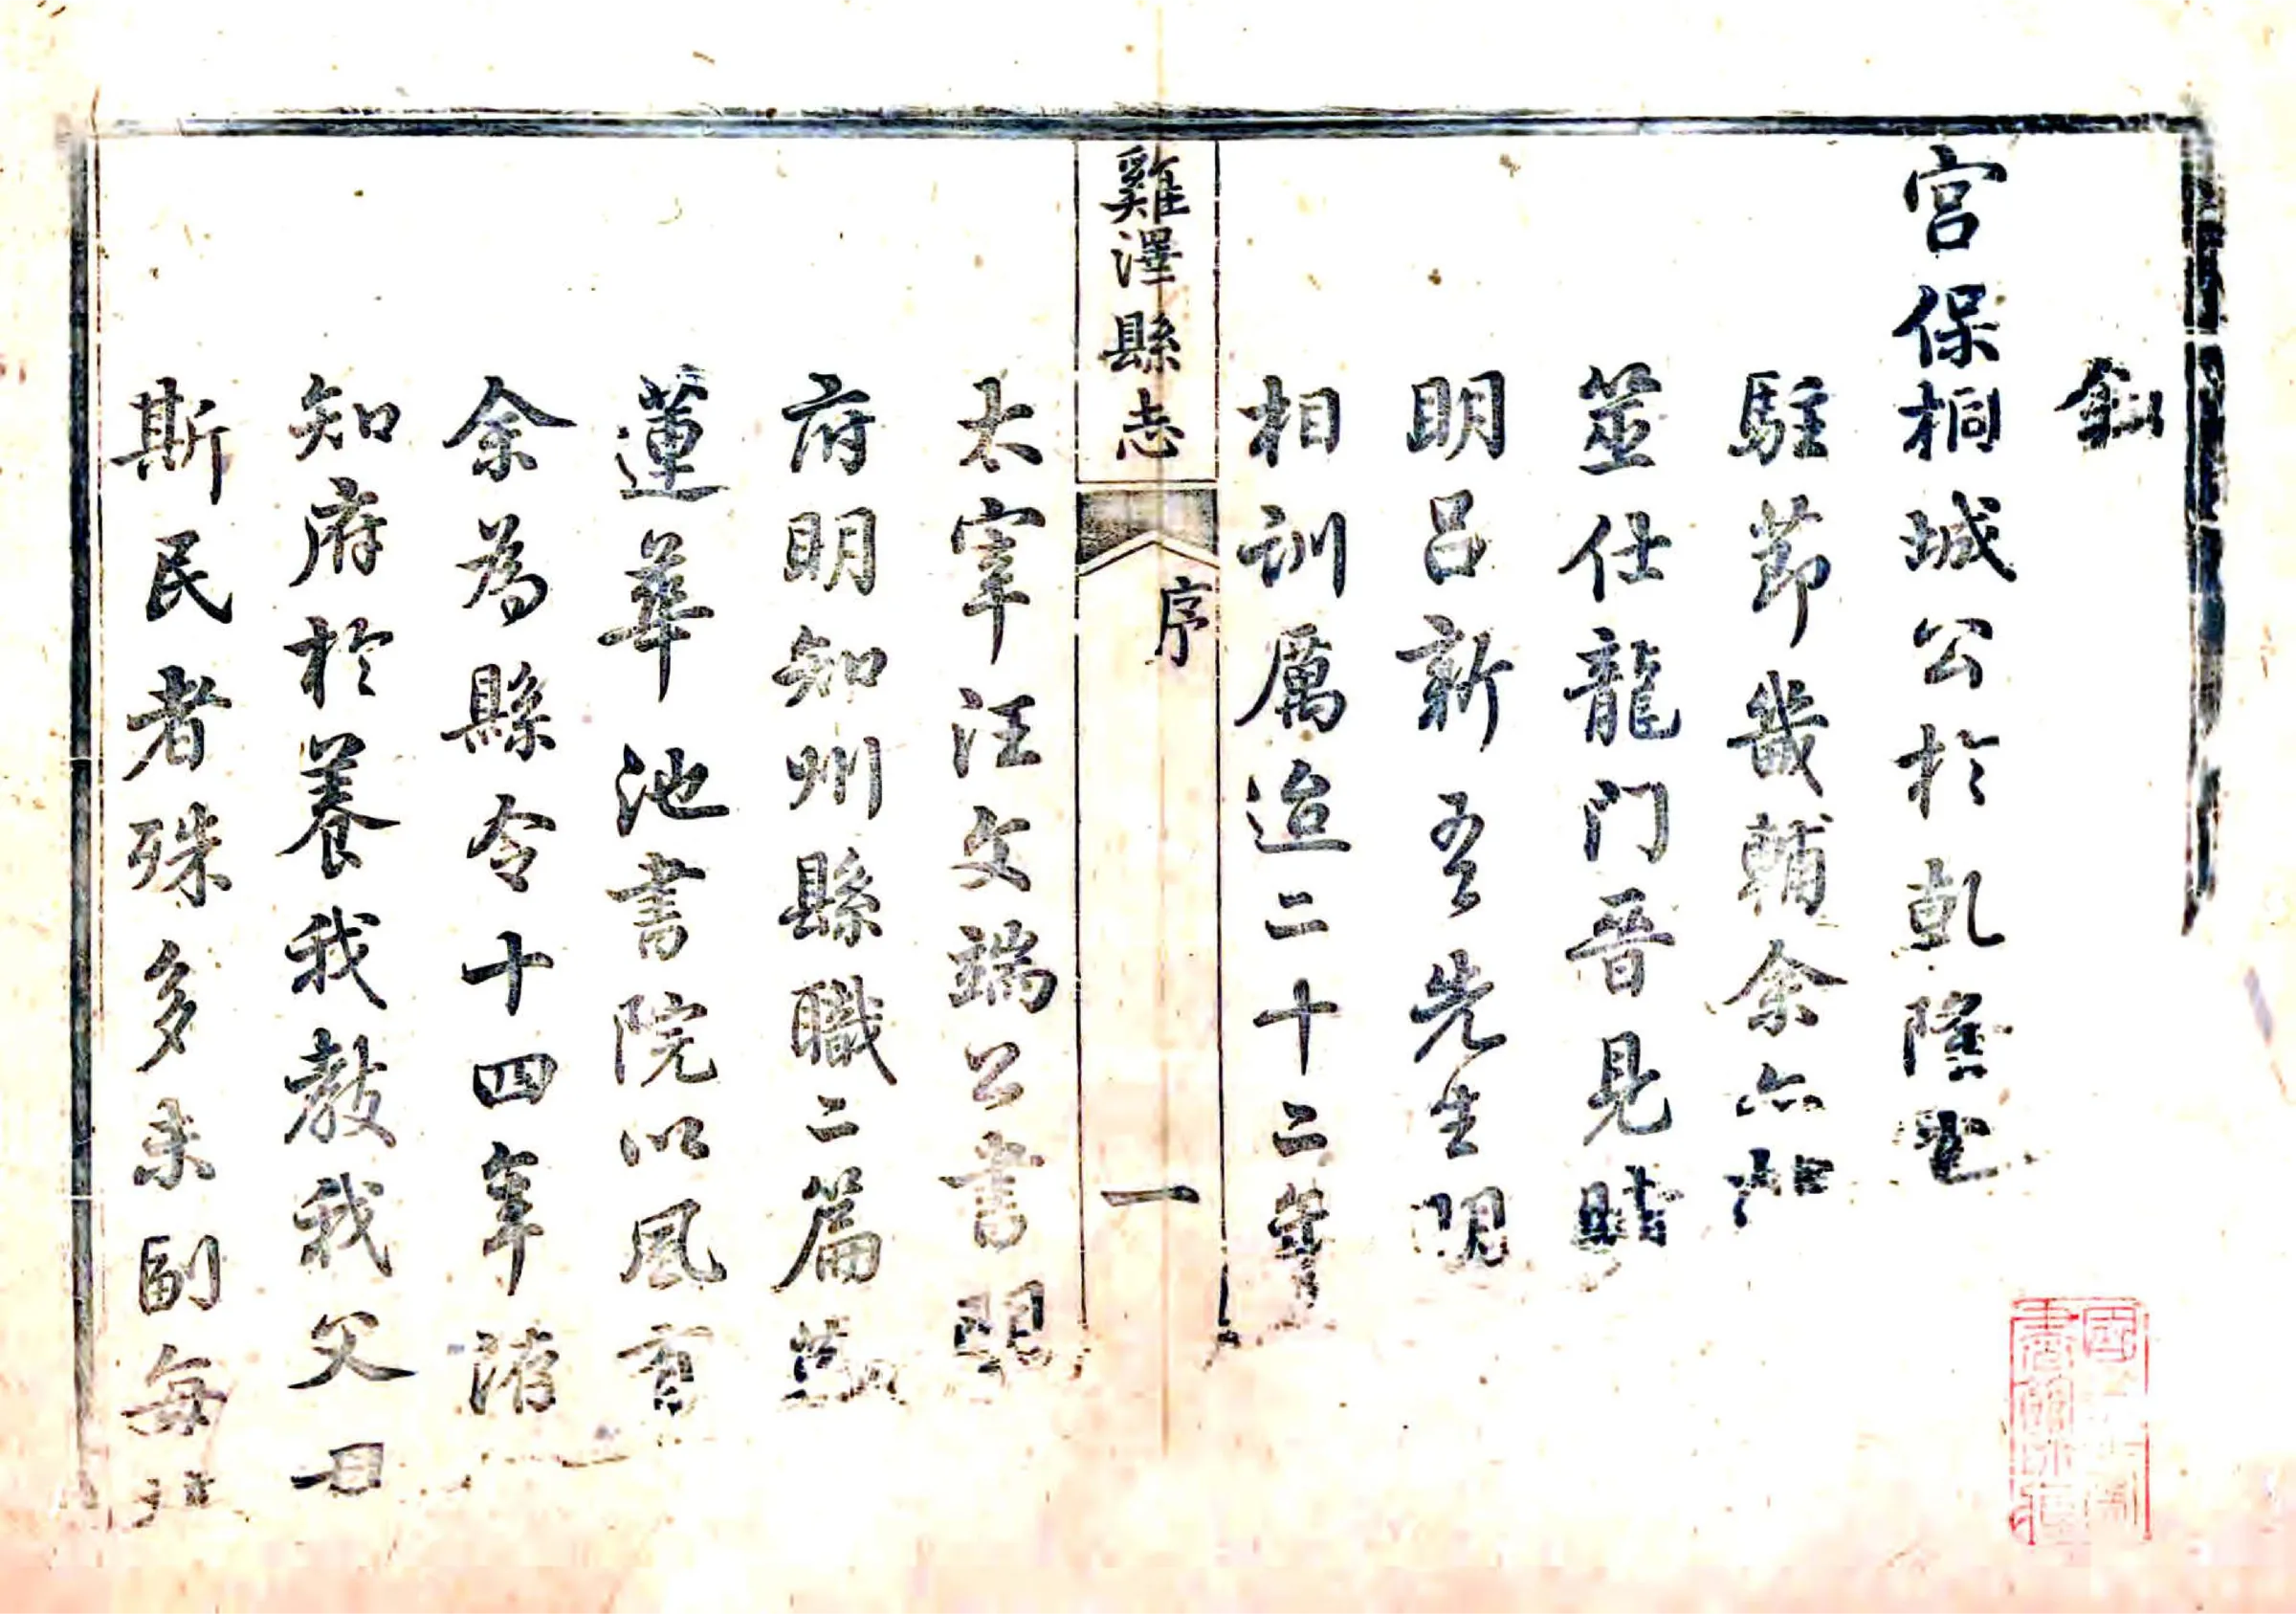 叙
宮保桐城公於乾隆
駐節畿輔余
筮仕龍門晉見時
明呂新吾先生
相訓厲迨二十二年
雞澤縣志
序
一
太宰汪文端公書
府明知州縣職二篇
蓮華池書院以風
余為縣令十四年
知府於養我教我父母
斯民者殊多未副每